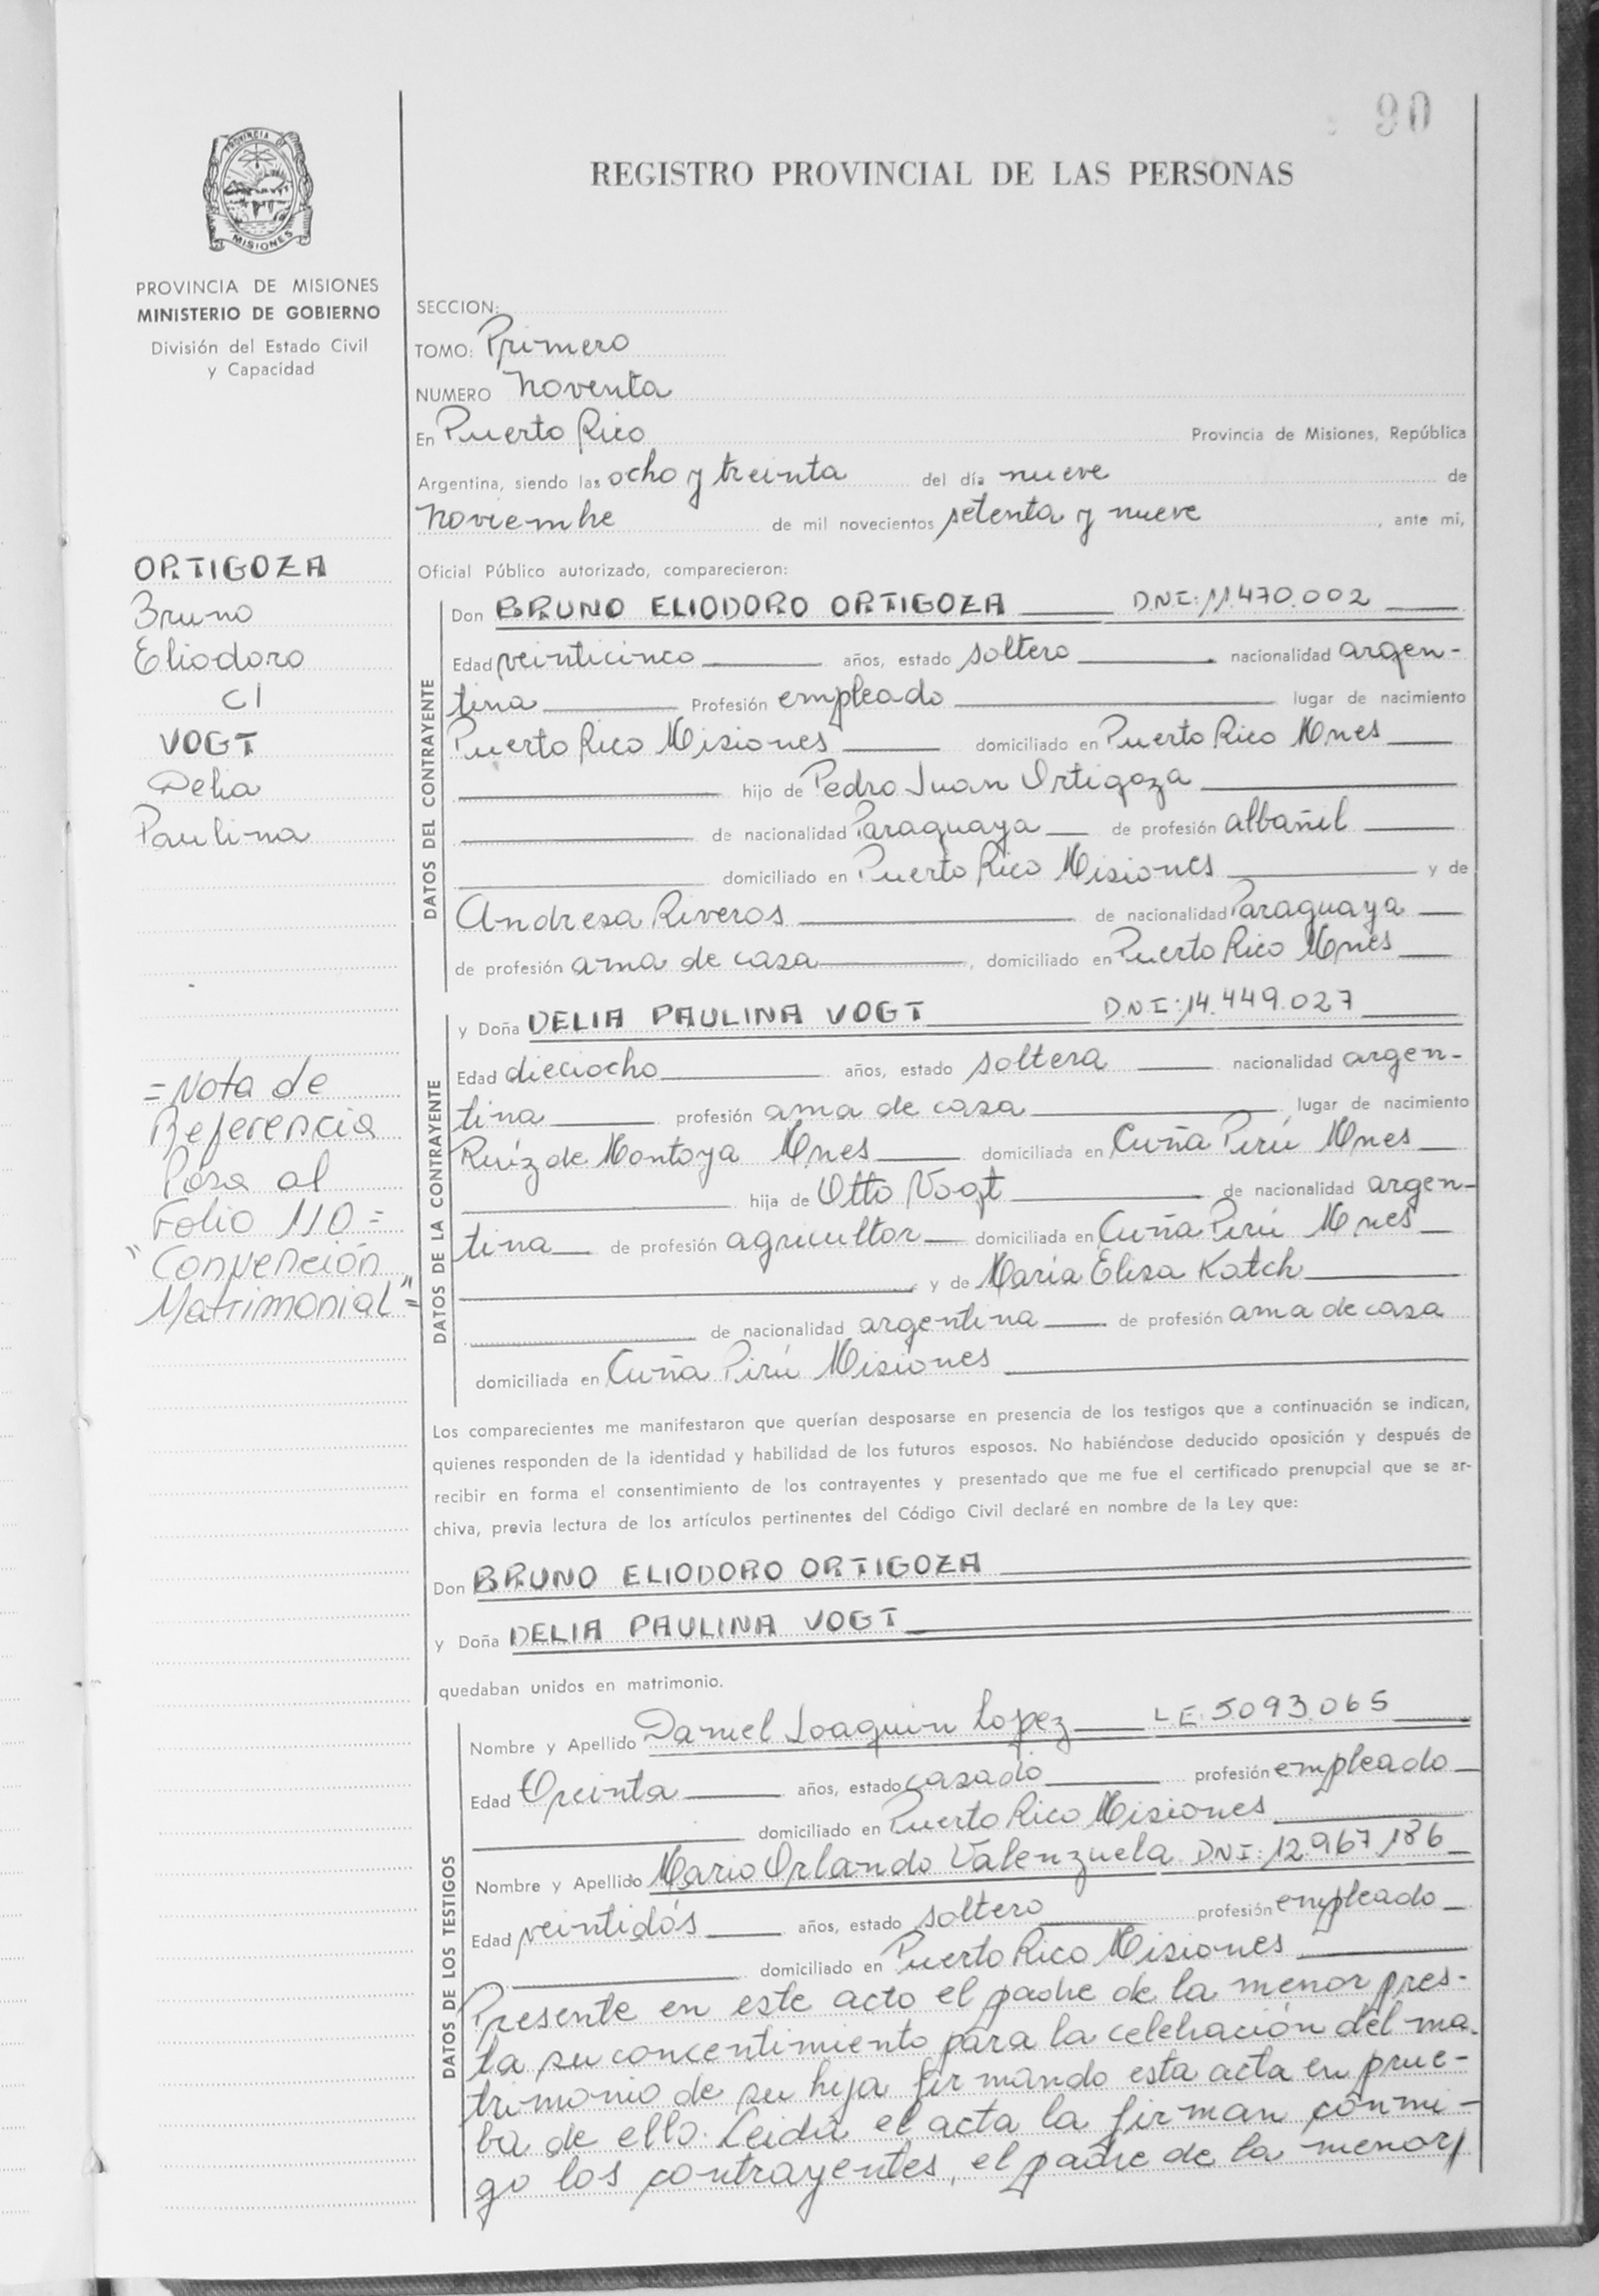 90
REGISTRO PROVINCIAL DE LAS PERSONAS
PROVINCIA
MISIONES
PROVINCIA DE MISIONES
MINISTERIO DE GOBIERNO
División del Estado Civil
y Capacidad
ORTIGOZA
Bruno
Eliodoro
C/
VOGT
Delia
Paulina
=Nota de
Referencia
Pasa al
Folio 110=
"Convención
Matrimonial"=
SECCION:
TOMO: Primero
NUMERO Noventa
En Puerto Rico Provincia de Misiones, República
Argentina, siendo las ocho y treinta del día nueve de
Noviembre de mil novecientos setenta y nueve, ante mi,
Oficial Público autorizado, comparecieron:
DATOS DEL CONTRAYENTE
Don BRUNO ELIODORO ORTIGOZA DNI: 11.470.002
Edad veinticinco años, estado soltero nacionalidad argen-
tina Profesión empleado lugar de nacimiento
Puerto Rico Misiones domiciliado en Puerto Rico Mnes
hijo de Pedro Juan Ortigoza
de nacionalidad Paraguaya de profesión albañil
domiciliado en Puerto Rico Misiones y de
Andresa Riveros de nacionalidad Paraguaya
de profesión ama de casa, domiciliado en Puerto Rico Mnes
DATOS DE LA CONTRAYENTE
y Doña DELIA PAULINA VOGT DNI: 14.449.027
Edad dieciocho años, estado soltera nacionalidad argen-
tina profesión ama de casa lugar de nacimiento
Ruíz de Montoya Mnes domiciliada en Cuña Pirú Mnes
hija de Otto Vogt de nacionalidad argen-
tina de profesión agricultor domiciliada en Cuña Pirú Mnes
y de María Elisa Katch
de nacionalidad argentina de profesión ama de casa
domiciliada en Cuña Pirú Misiones
Los comparecientes me manifestaron que querían desposarse en presencia de los testigos que a continuación se indican,
quienes responden de la identidad y habilidad de los futuros esposos. No habiéndose deducido oposición y después de
recibir en forma el consentimiento de los contrayentes y presentado que me fue el certificado prenupcial que se ar-
chiva, previa lectura de los artículos pertinentes del Código Civil declaré en nombre de la Ley que:
Don BRUNO ELIODORO ORTIGOZA
y Doña DELIA PAULINA VOGT
quedaban unidos en matrimonio.
DATOS DE LOS TESTIGOS
Nombre y Apellido Daniel Joaquin Lopez LE 5.093.065
Edad Treinta años, estado casado profesión empleado
domiciliado en Puerto Rico Misiones
Nombre y Apellido Mario Orlando Valenzuela DNI: 12.967.186
Edad veintidós años, estado soltero profesión empleado
domiciliado en Puerto Rico Misiones
Presente en este acto el padre de la menor pres-
ta su concentimiento para la celebración del ma-
trimonio de su hija firmando esta acta en prue-
ba de ello. Leida el acta la firman conmi-
go los contrayentes, el padre de la menor y